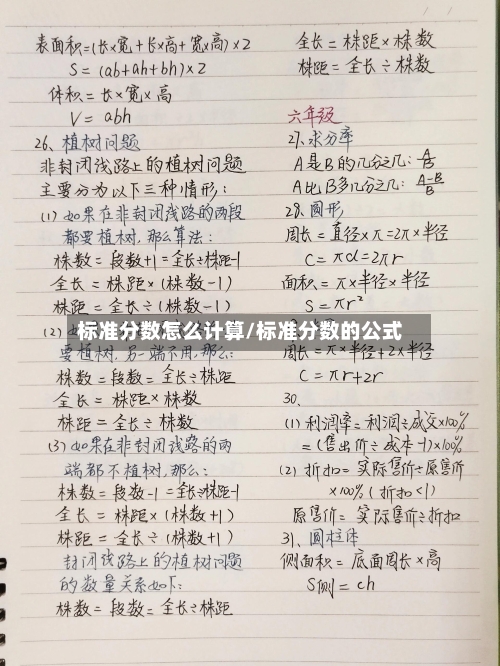 表面积=(长×宽+长×高+宽×高)×2
S=(ab+ah+bh)×2
体积=长×宽×高
V=abh
26、植树问题
非封闭线路上的植树问题
主要分为以下三种情形:
(1)如果在非封闭线路的两段
都要植树,那么算法:
株数=段数+1=全长÷株距-1
全长=株距×(株数-1)
株距=全长÷(株数-1)
(2)
要植树,另一端不用,那么:
株数=段数=全长÷株距
全长=株距×株数
株距=全长÷株数
(3)如果在非封闭线路的两
端都不植树,那么:
株数=段数-1=全长÷株距-1
全长=株距×(株数+1)
株距=全长÷(株数+1)
封闭线路上的植树问题
的数量关系如下:
株数=段数=全长÷株距
全长=株距×株数
株距=全长÷株数
六年级
27、求分率
A是B的几分之几:A/B
A比B多几分之几:A-B/B
28、圆形
周长=直径×π=2π×半径
C=πd=2πr
面积=π×半径×半径
S=πr²
标准分数怎么计算/标准分数的公式
周长=π×半径+2×半径
C=πr+2r
30、
(1)利润率=利润÷成交×100%
=(售出价÷成本-1)×100%
(2)折扣=实际售价÷原售价
×100%(折扣<1)
原售价=实际售价÷折扣
31、圆柱体
侧面积=底面周长×高
S侧=ch